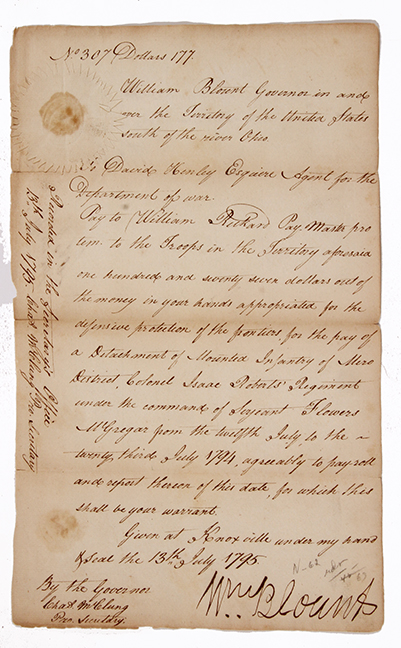 No 307 Dollars 177.
William Blount Governor in and
over the Territory of the United States
south of the river Ohio
To David Henley Esquire Agent for the
Department of war.
Pay to William Rickard Pay Master pro
tem. to the Troops in the Territory aforesaid
one hundred and seventy seven dollars out of
the money in your hands appropriated for the
defensive protection of the frontiers, for the pay of
a Detachment of Mounted Infantry of Miro
District, Colonel Isaac Roberts' Regiment
under the command of Serjeant Flowers
McGregar from the twelfth July to the
twenty third July 1794, agreeably to pay roll
and report thereon of this date, for which this
shall be your warrant.
Given at Knoxville under my hand
& Seal the 13th July 1795
By the Governor
Chas McClung
Pro. Secretary.
Wm Blount
N-62
63
Recorded in the Secretary's Office
13th July 1795. Chas McClung Pro. Secretary